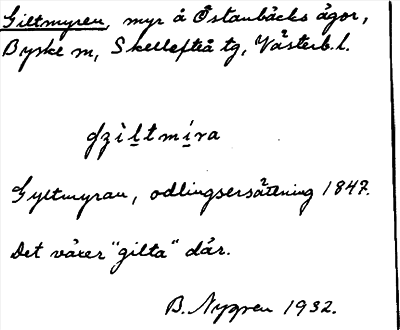 Giltmyren, myr å Östanbäcks ägor,
Byske sn, Skellefteå tg, Västerb. l.
gzìltmíra
Gyltmyran, odlingsersättning 1847.
Det växer "gilta" där.
B. Nygren 1932.